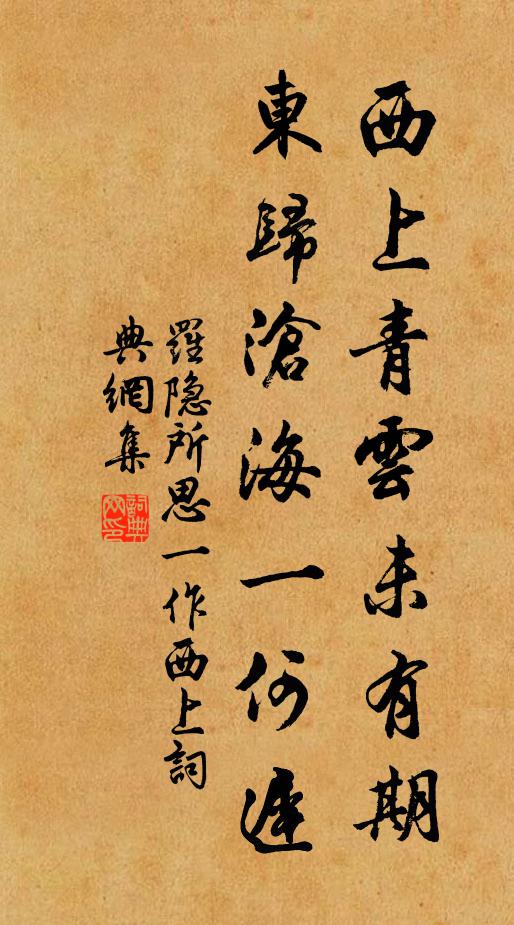 西上青雲未有期
東歸滄海一何遲
羅隱所思一作西上詞
典網集
詞典網印